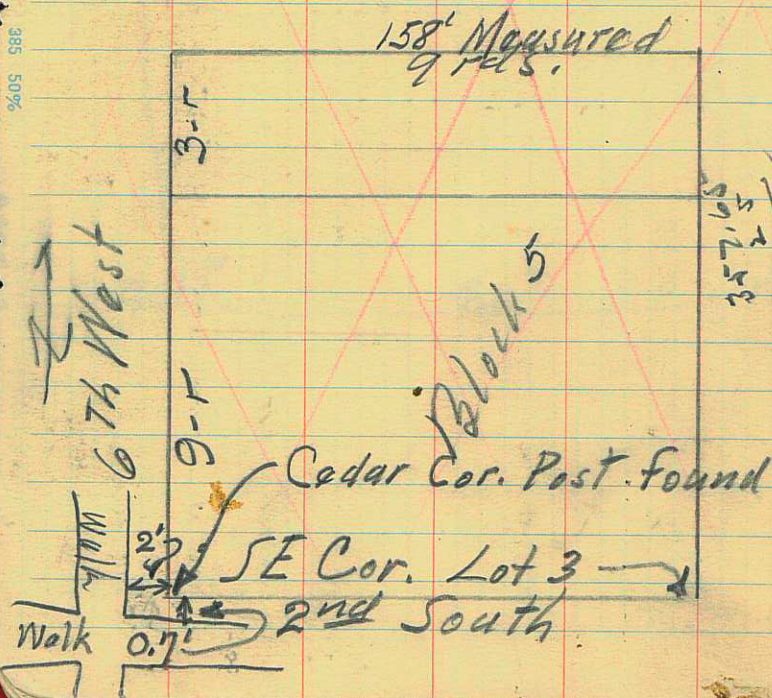 158' Measured
9 rds.
385 50%
3-r
6 Th West
9-r
Block 5
Cedar Cor. Post. found
Walk
2'
SE Cor. Lot 3
2nd South
Walk
0.7'